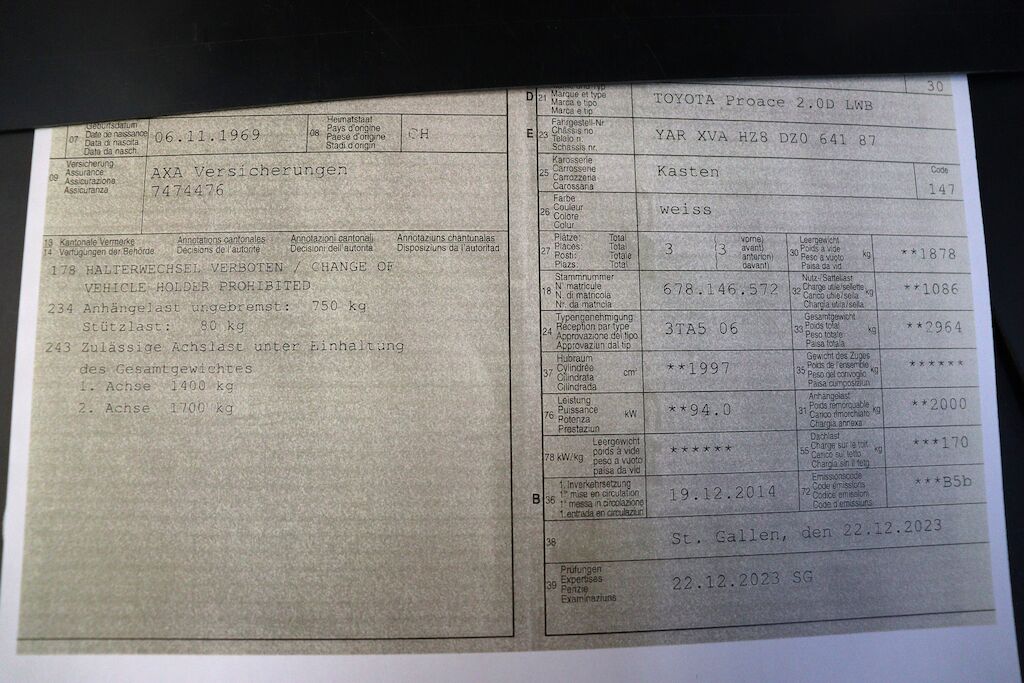 07 Geburtsdatum
Date de naissance
Data di nascita
Data da nasch.
06.11.1969
08 Heimatstaat
Pays d'origine
Paese d'origine
Stadi d'origin
CH
09 Versicherung
Assurance
Assicurazione
Assicuranza
AXA Versicherungen
7474476
13 Kantonale Vermerke Annotations cantonales Annotazioni cantonali Annotaziuns chantunalas
14 Verfügungen der Behörde Décisions de l'autorité Decisioni dell'autorità Disposiziuns da l'autoritad
178 HALTERWECHSEL VERBOTEN / CHANGE OF
VEHICLE HOLDER PROHIBITED
234 Anhängelast ungebremst: 750 kg
Stützlast: 80 kg
243 Zulässige Achslast unter Einhaltung
des Gesamtgewichtes
1. Achse 1400 kg
2. Achse 1700 kg
30
D 21 Marque et type
Marca e tipo
Marca e tip
TOYOTA Proace 2.0D LWB
E 23 Fahrgestell-Nr
Châssis no
Telaio n.
Schassis nr.
YAR XVA HZ8 DZ0 641 87
25 Karosserie
Carrosserie
Carrozzeria
Carossaria
Kasten
Code
147
26 Farbe
Couleur
Colore
Colur
weiss
27 Plätze: Total
Places: Total
Posti: Totale
Plazs: Total
3 (3 vorne)
avant)
anteriori)
davant)
30 Leergewicht
Poids à vide
Peso a vuoto
Paisa da vid
kg
**1878
18 Stammnummer
N° matricule
N. di matricola
Nr. da matricla
678.146.572
32 Nutz-/Sattellast
Charge utile/sellette
Carico utile/sella
Chargia utila/sella
kg
**1086
24 Typengenehmigung
Réception par type
Approvazione del tipo
Approvaziun dal tip
3TA5 06
33 Gesamtgewicht
Poids total
Peso totale
Paisa totala
kg
**2964
37 Hubraum
Cylindrée
Cilindrata
Cilindrada
cm³
**1997
35 Gewicht des Zuges
Poids de l'ensemble
Peso del convoglio
Paisa cumposiziun
kg
******
76 Leistung
Puissance
Potenza
Prestaziun
kW
**94.0
31 Anhängelast
Poids remorquable
Carico rimorchiato
Chargia annexa
kg
**2000
78 kW/kg Leergewicht
poids à vide
peso a vuoto
paisa da vid
******
55 Dachlast
Charge sur le toit
Carico sul tetto
Chargia sin il tetg
kg
***170
B 36 1. Inverkehrsetzung
1re mise en circulation
1a messa in circolazione
1. entrada en circulaziun
19.12.2014
72 Emissionscode
Code émissions
Codice emissioni
Code d'emissiuns
***B5b
38
St. Gallen, den 22.12.2023
39 Prüfungen
Expertises
Perizie
Examinaziuns
22.12.2023 SG